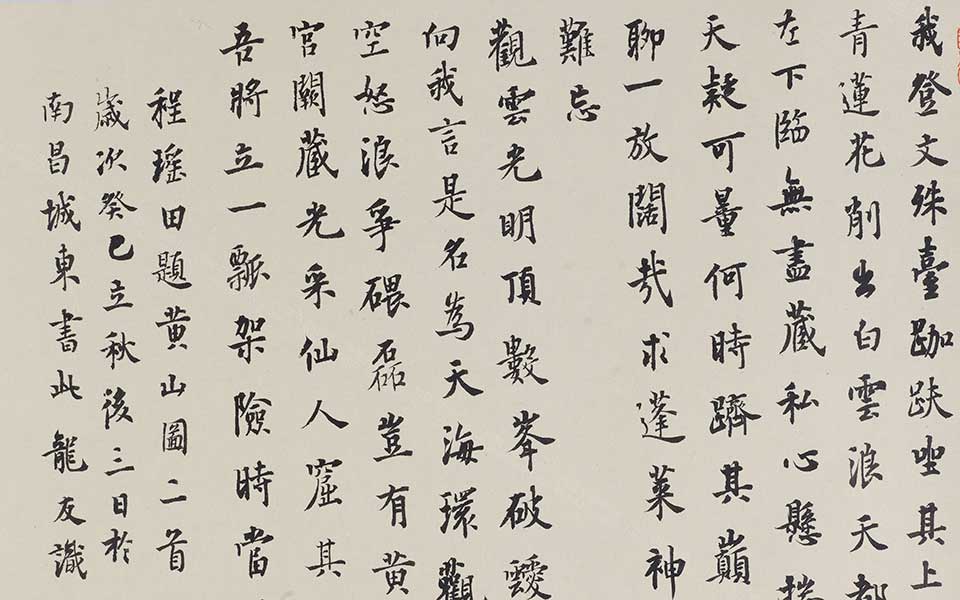 我登文殊臺跏趺坐其上
青蓮花削出白雲浪天都
左下臨無盡藏私心懸揣
天疑可量何時躋其巔
聊一放闊哉求蓬萊神
難忘
觀雲光明頂數峯破靉
向我言是名為天海環觀
空怒浪爭碨磊豈有黃
宮闕藏光采仙人窟其
吾將立一瓢架險時當
程瑤田題黃山圖二首
歲次癸巳立秋後三日於
南昌城東書此龍友識